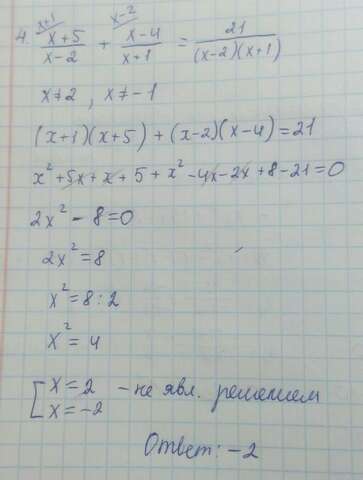 x+1 x-2
4. x+5/x-2 + x-4/x+1 = 21/(x-2)(x+1)
x≠2, x≠-1
(x+1)(x+5)+(x-2)(x-4)=21
x²+5x+x+5+x²-4x-2x+8-21=0
2x²-8=0
2x²=8
x²=8:2
x²=4
[x=2 - не явл. решением
x=-2
Ответ: -2